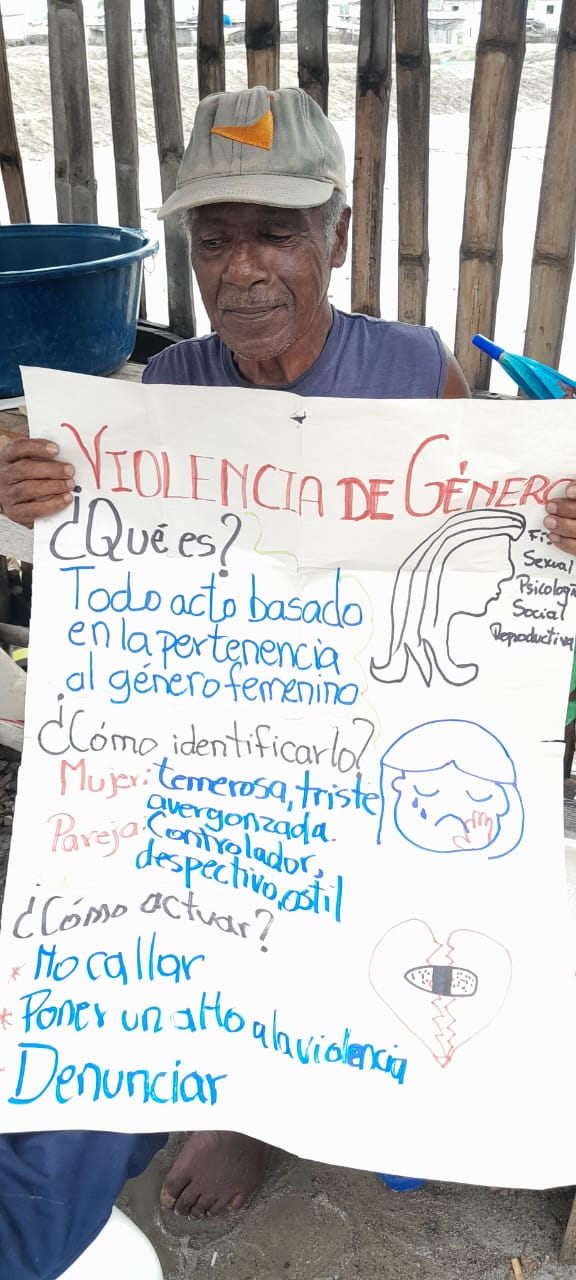 VIOLENCIA DE GÉNERO
¿Qué es?
Todo acto basado
en la pertenencia
al género femenino
Sexual
Social
Reproductiva
¿Cómo identificarlo?
Mujer: temerosa, triste
avergonzada.
Pareja: Controlador,
despectivo, ostil
¿Cómo actuar?
* No callar
* Poner un alto a la violencia
Denunciar